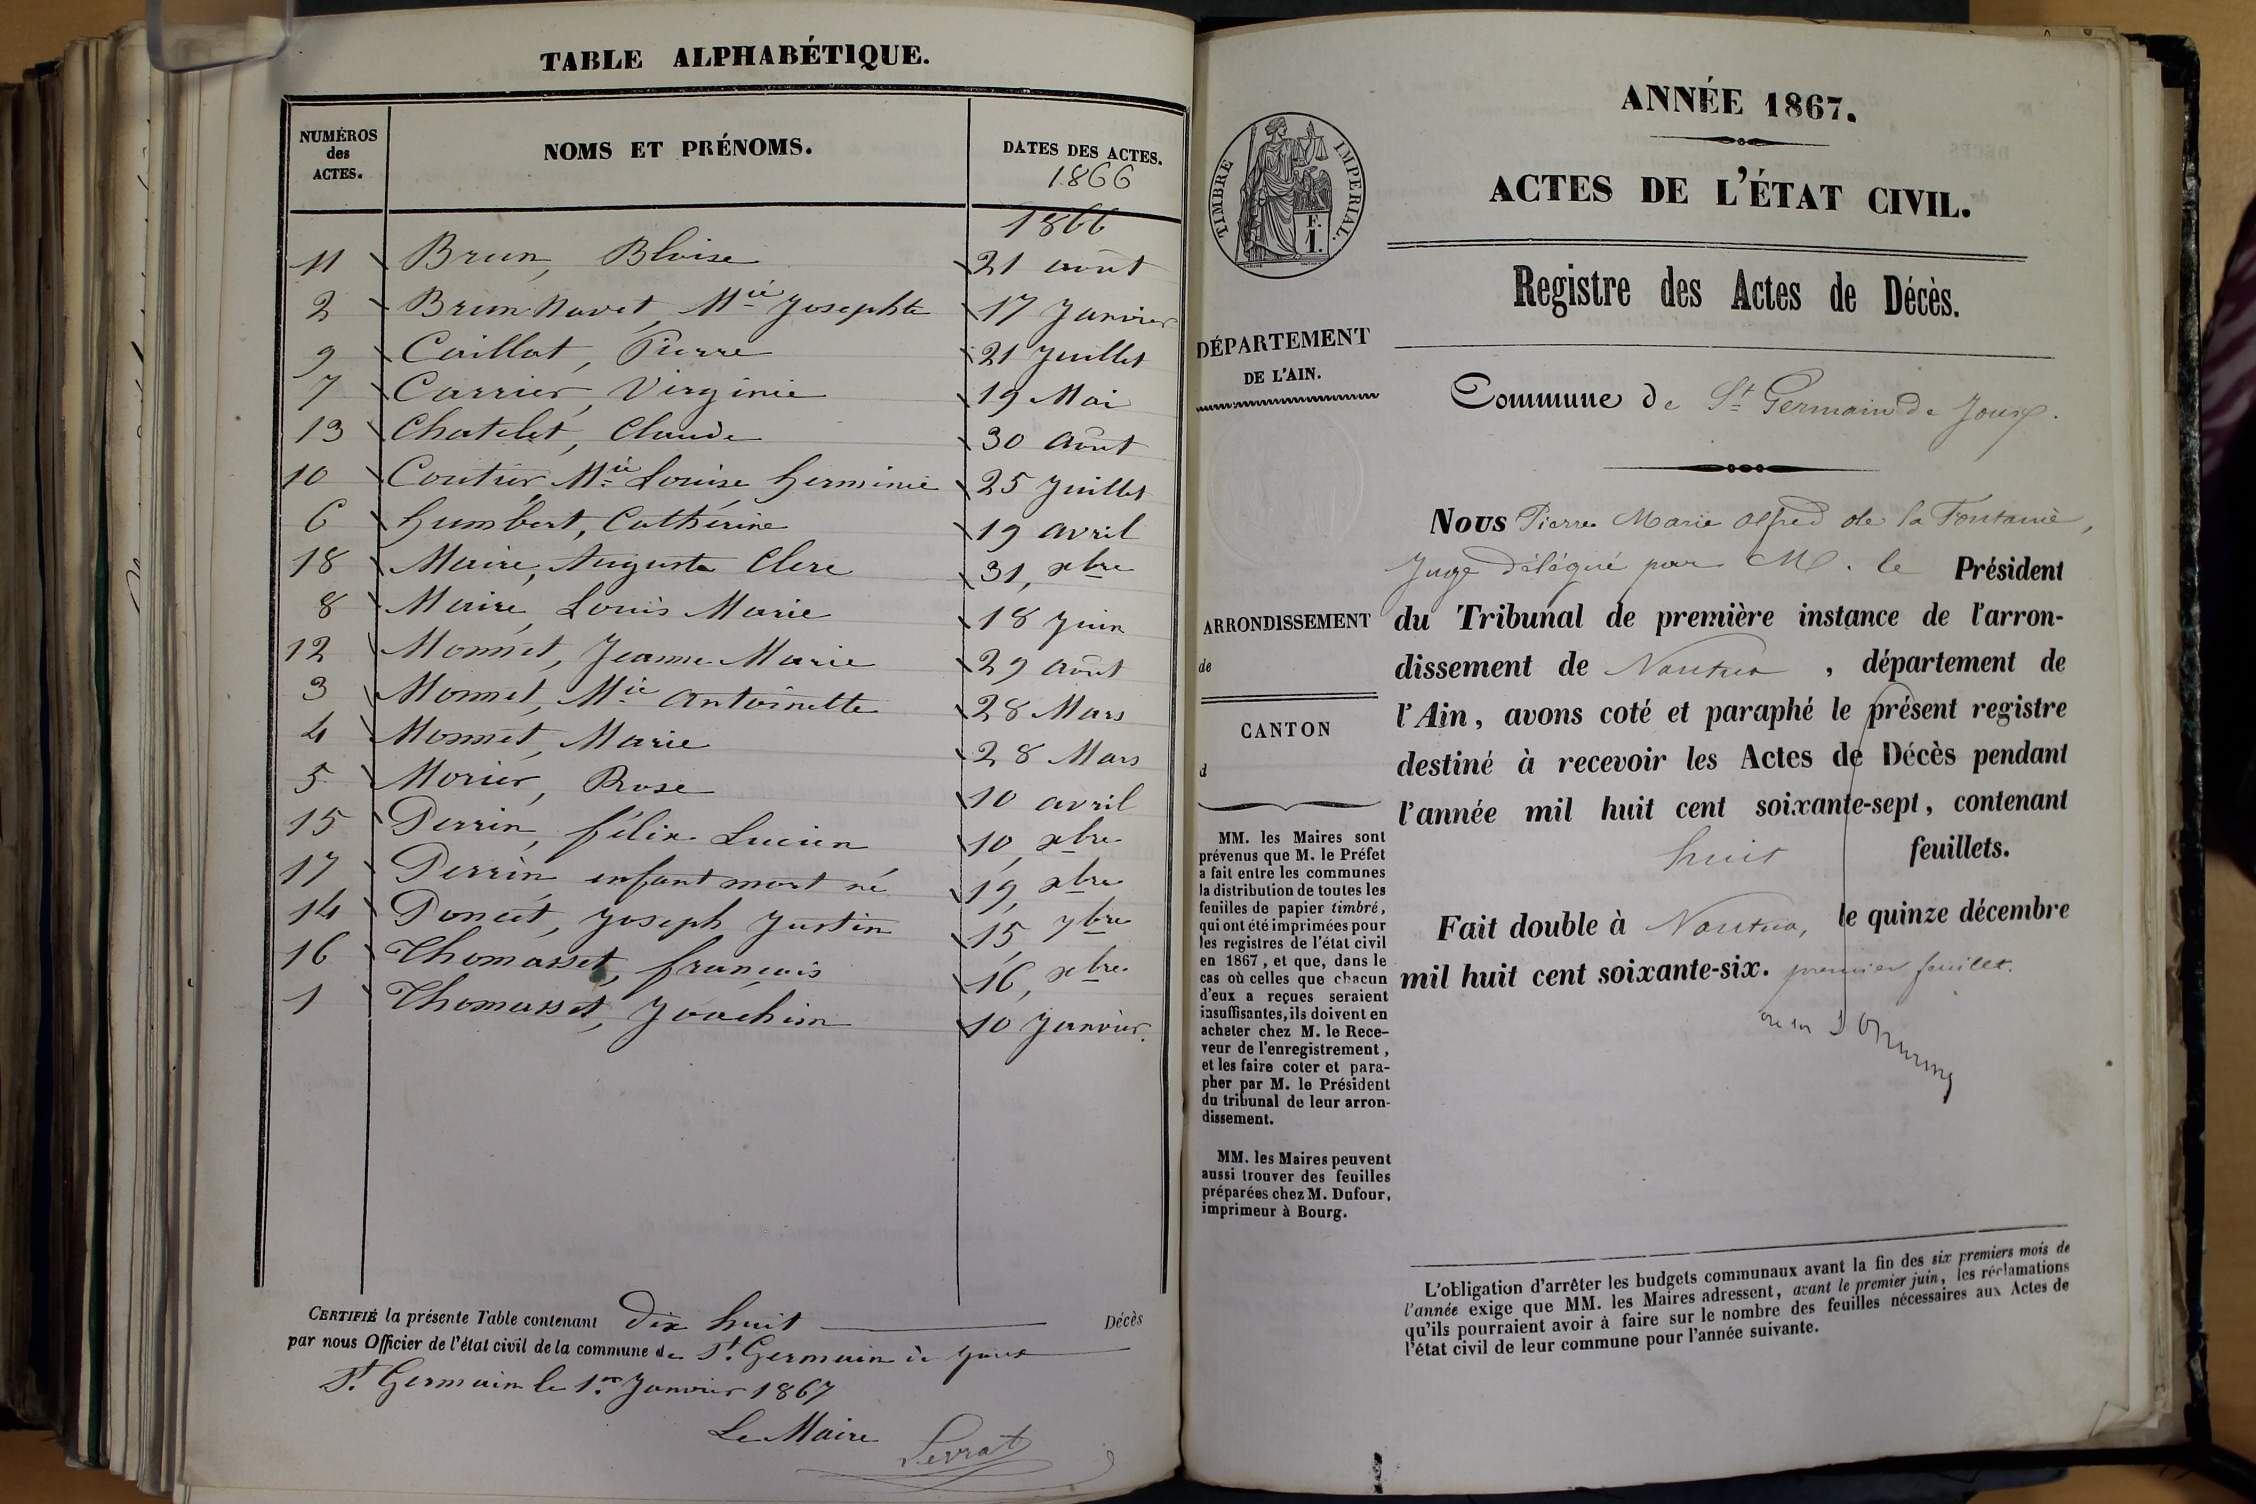 TABLE ALPHABÉTIQUE.
NUMÉROS des ACTES. NOMS ET PRÉNOMS. DATES DES ACTES.
1866
1866
11 Brun, Blaise 21 août
2 Brun Navet, Mie Josephte 17 Janvier
9 Caillat, Pierre 21 Juillet
7 Carrier, Virginie 19 Mai
13 Chatelet, Claude 30 août
10 Coutier, Mie Louise Herminie 25 Juillet
6 humbert, Cathérine 19 avril
18 Maire, Auguste Clere 31, xbre
8 Maire, Louis Marie 18 Juin
12 Monnet, Jeanne Marie 29 août
3 Monnet, Mie antoinette 28 Mars
4 Monnet, Marie 28 Mars
5 Morier, Rose 10 avril
15 Perrin, félix Lucien 10, xbre
17 Perrin enfant mort né 19, xbre
14 Poncet, Joseph Justin 15, 7bre
16 Thomasset, françois 16, xbre
1 Thomasset, Joachim 10 Janvier.
CERTIFIÉ la présente Table contenant Dix huit Décès
par nous Officier de l'état civil de la commune de St. Germain de Joux
St. Germain le 1er Janvier 1867
Le Maire
Levrat
ANNÉE 1867.
ACTES DE L'ÉTAT CIVIL.
TIMBRE IMPERIAL.
F.
1.
Registre des Actes de Décès.
DÉPARTEMENT
DE L'AIN.
Commune de St Germain de Joux.
Nous Pierre Marie Alfred de la Fontaine,
Juge délégué par M. le Président
du Tribunal de première instance de l'arron-
dissement de Nantua, département de
l'Ain, avons coté et paraphé le présent registre
destiné à recevoir les Actes de Décès pendant
l'année mil huit cent soixante-sept, contenant
huit feuillets.
Fait double à Nantua, le quinze décembre
mil huit cent soixante-six. premier feuillet.
ARRONDISSEMENT
de
CANTON
d
MM. les Maires sont
prévenus que M. le Préfet
a fait entre les communes
la distribution de toutes les
feuilles de papier timbré,
qui ont été imprimées pour
les registres de l'état civil
en 1867, et que, dans le
cas où celles que chacun
d'eux a reçues seraient
insuffisantes, ils doivent en
acheter chez M. le Rece-
veur de l'enregistrement,
et les faire coter et para-
pher par M. le Président
du tribunal de leur arron-
dissement.
MM. les Maires peuvent
aussi trouver des feuilles
préparées chez M. Dufour,
imprimeur à Bourg.
L'obligation d'arrêter les budgets communaux avant la fin des six premiers mois de
l'année exige que MM. les Maires adressent, avant le premier juin, les réclamations
qu'ils pourraient avoir à faire sur le nombre des feuilles nécessaires aux Actes de
l'état civil de leur commune pour l'année suivante.